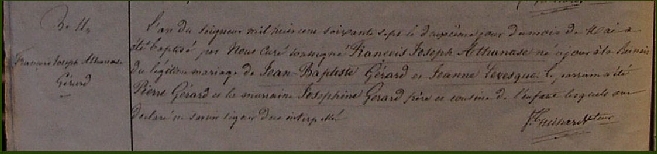 B. 11
François Joseph Athanase
Gérard
L'an du Seigneur mil huit cent soixante sept le deuxième jour du mois de Mai a
été baptisé par Nous Curé soussigné François Joseph Athanase né ce jour à
du légitime mariage de Jean Baptiste Gérard et Jeanne Levesque le parrain a été
Pierre Gérard et la marraine Josephine Gérard frère et cousine de l'enfant lesquels ont
déclaré ne savoir signer